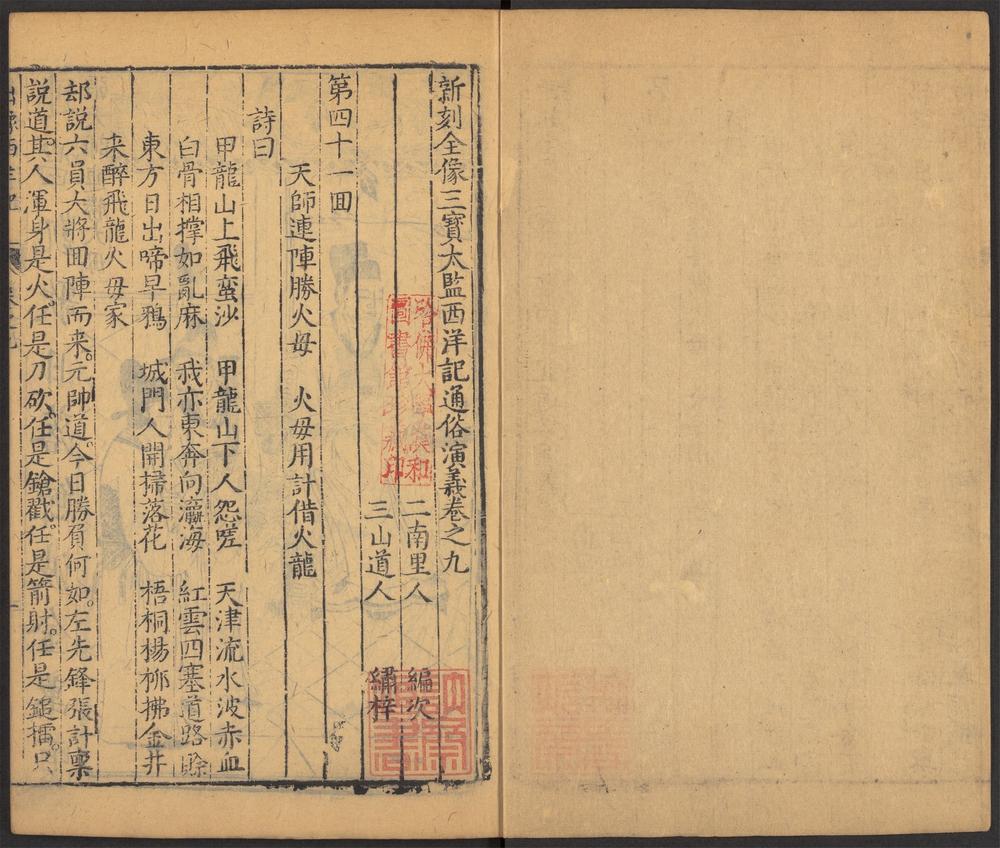 新刻全像三寶太監西洋記通俗演義卷之九
二南里人 編次
三山道人 繡梓
第四十一囬
天師連陣勝火母 火母用計借火龍
詩曰
甲龍山上飛蛮沙 甲龍山下人怨嗟 天津流水波赤血
白骨相撑如亂麻 我亦東奔向瀛海 紅雲四塞道路賖
東方日出啼早鵶 城門人開掃落花 梧桐楊栁拂金井
来醉飛龍火母家
却説六員大將囬陣而来。元帥道。今日勝負何如。左先鋒張計稟
説道。其人渾身是火。任是刀砍。任是鎗戳。任是箭射。任是鎚擂。只